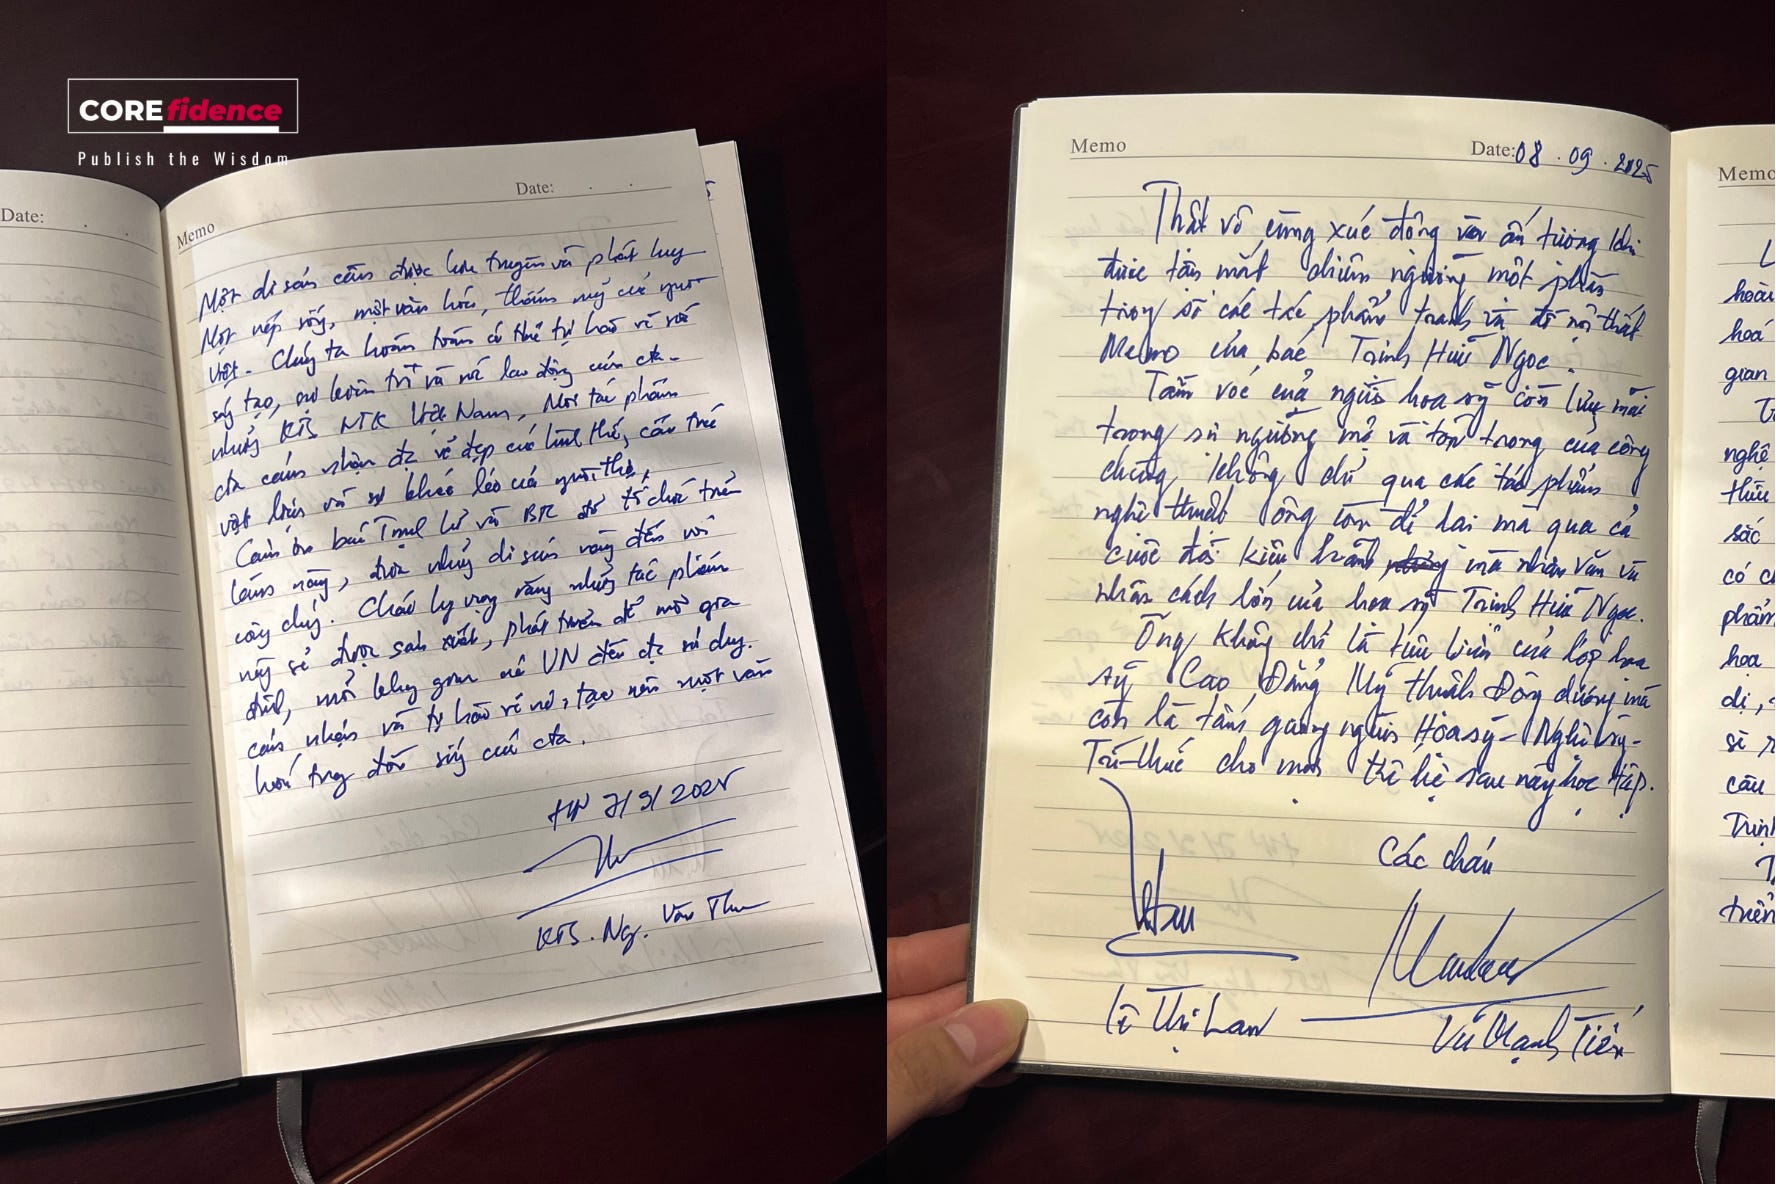 COREfidence
Publish the Wisdom
Date:
Memo
Date:
Một di sản cần được lưu truyền và phát huy
Một nếp sống, một văn hóa, thẩm mỹ của người
Việt. Chúng ta hoàn toàn có thể tự hào về
sáng tạo, và lao động của cta.
những KTS NTK Việt Nam, Mọi tác phẩm
cta cảm nhận đc vẻ đẹp của hình thể, cấu trúc
vật liệu và sự khéo léo của người thợ.
Cảm ơn bác Trịnh Lữ và BTC đã tổ chức triển
lãm này, đưa những di sản này đến với
công chúng. Cháu hy vọng rằng những tác phẩm
này sẽ được sản xuất, phát triển để mỗi gia
đình, mỗi không gian ở VN đều đc sử dụng.
cảm nhận và tự hào về nó, tạo nên một văn
hoá trong đời sống của cta.
HN 7/9/2025
KTS. Ng. Văn Thu
Memo
Date: 08.09.2025
Thật vô cùng xúc động và ấn tượng khi
được tận mắt chiêm ngưỡng một phần
trong số các tác phẩm tranh và đồ nội thất
Memo của bác Trịnh Hữu Ngọc.
Tầm vóc của người hoạ sỹ còn lưu mãi
trong sự ngưỡng mộ và tôn trọng của công
chúng, không chỉ qua các tác phẩm
nghệ thuật ông còn để lại mà qua cả
cuộc đời kiêu hãnh mà nhân văn và
nhân cách lớn của hoạ sỹ Trịnh Hữu Ngọc.
Ông không chỉ là tiêu biểu của lớp hoạ
sỹ Cao Đẳng Mỹ thuật Đông dương mà
còn là tấm gương người Hoạ sỹ - Nghệ sỹ -
Trí thức cho mọi thế hệ sau này học tập.
Các cháu
Lê Thị Lan
Vũ Mạnh Tiến
Memo
hoài
hoá
gian
nghệ
thức
sắc
có
phẩm
hoạ
dị,
sẽ
câu
Trịnh
triển